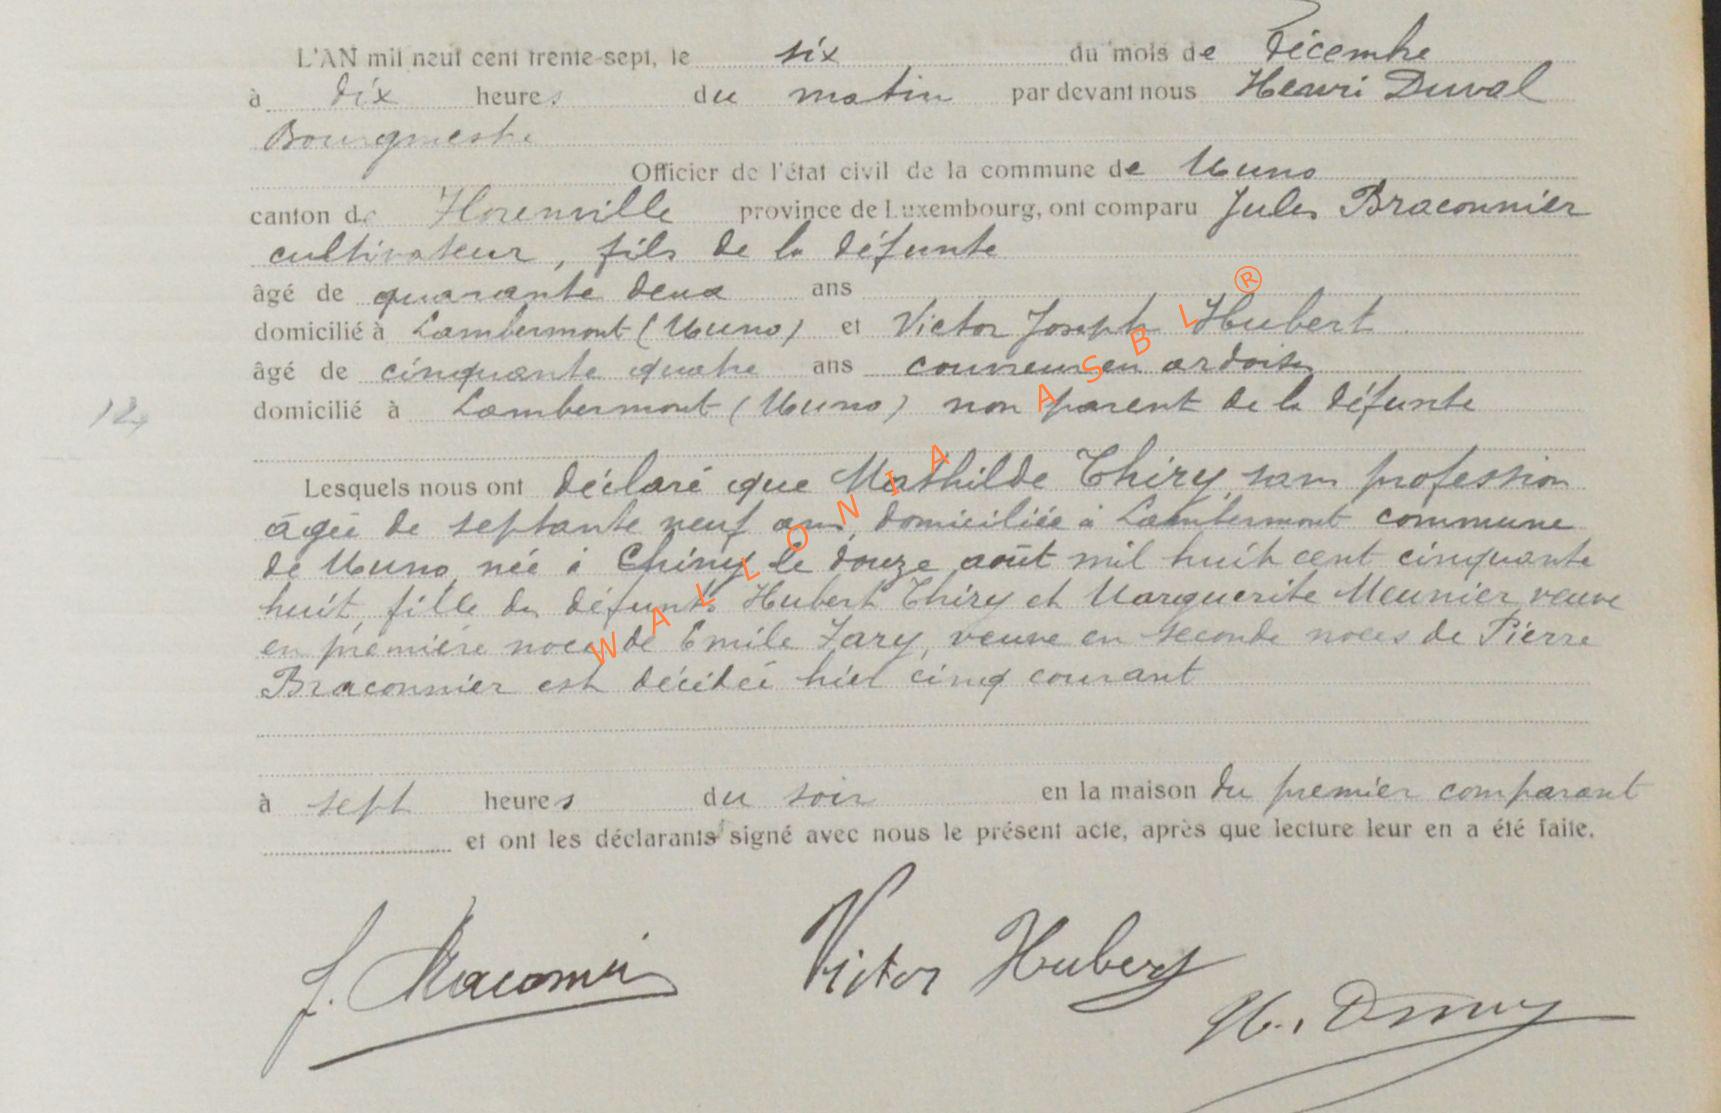 L'AN mil neuf cent trente-sept, le six du mois de décembre
à dix heures du matin par devant nous Henri Duval
Bourgmestre
Officier de l'état civil de la commune de Muno
canton de Florenville province de Luxembourg, ont comparu Jules Braconnier
cultivateur, fils de la défunte
âgé de quarante deux ans
domicilié à Lambermont (Muno) et Victor Joseph Hubert
âgé de cinquante quatre ans couvreur en ardoises
domicilié à Lambermont (Muno) non parent de la défunte
12
Lesquels nous ont déclaré que Mathilde Thiry, sans profession
âgée de septante neuf ans, domiciliée à Lambermont commune
de Muno, née à Chiny le douze août mil huit cent cinquante
huit, fille des défunts Hubert Thiry et Marguerite Meunier, veuve
en première noces de Emile Zary, veuve en seconde noces de Pierre
Braconnier est décédée hier cinq courant
à sept heures du soir en la maison du premier comparant
et ont les déclarants signé avec nous le présent acte, après que lecture leur en a été faite.
J. Braconnier Victor Hubert
H. Duval
WALLONIA ASBL ®